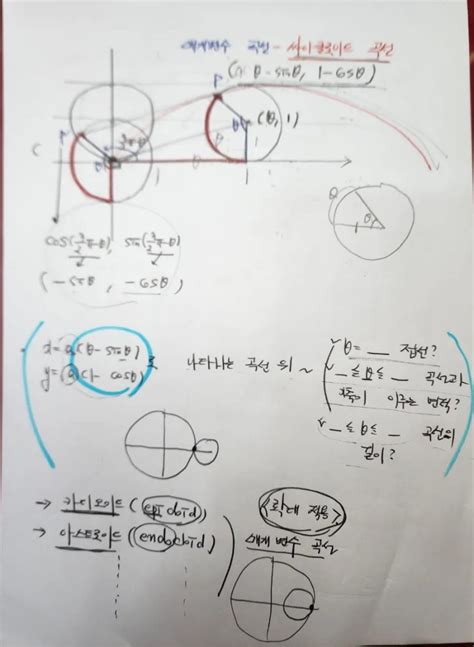 매개변수 곡선 - 싸이클로이드 곡선
(θ-sinθ, 1-cosθ)
P
P
θ
(θ, 1)
C
θ
1
1
θ
1
θ
cos(3/2π-θ), sin(3/2π-θ)
(-sinθ, -cosθ)
x=a(θ-sinθ)
y=a(1-cosθ)
로 나타나는 곡선 위 ~
θ= __ 접선?
__≤θ≤__ 곡선과
x축이 이루는 면적?
__≤θ≤__ 곡선의
길이?
→ 카디오이드 (epicloid)
→ 아스트로이드 (endocloid)
<확대 적용>
매개변수 곡선